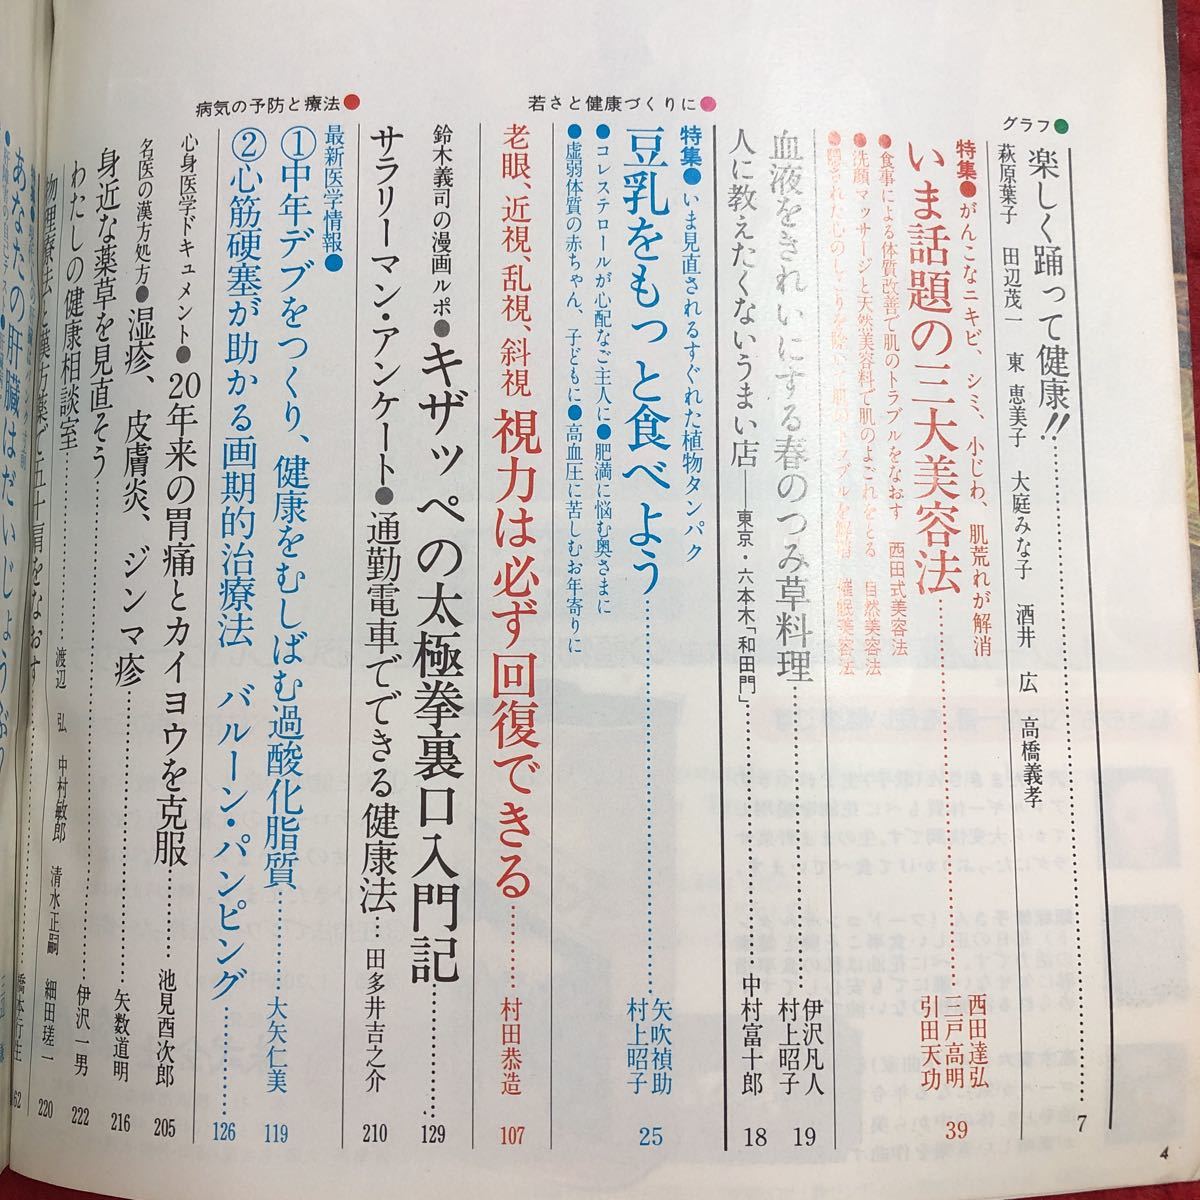 グラフ●
楽しく踊って健康!!……7
萩原葉子　田辺茂一　東　恵美子　大庭みな子　酒井　広　高橋義孝
若さと健康づくりに●
特集●がんこなニキビ、シミ、小じわ、肌荒れが解消
いま話題の三大美容法……39
西田達弘
三戸高明
引田天功
●食事による体質改善で肌のトラブルをなおす　西田式美容法
●洗顔マッサージと天然美容料で肌のよごれをとる　自然美容法
●隠された心のしこりを除いて肌のトラブルを解消　催眠美容法
血液をきれいにする春のつみ草料理……
伊沢凡人
村上昭子
19
人に教えたくないうまい店——東京・六本木「和田門」……中村富十郎　18
特集●いま見直されるすぐれた植物タンパク
豆乳をもっと食べよう……
矢吹禎助
村上昭子
25
●コレステロールが心配なご主人に●肥満に悩む奥さまに
●虚弱体質の赤ちゃん、子どもに●高血圧に苦しむお年寄りに
老眼、近視、乱視、斜視　視力は必ず回復できる……村田恭造　107
鈴木義司の漫画ルポ●キザッペの太極拳裏口入門記……129
サラリーマン・アンケート●通勤電車でできる健康法……田多井吉之介　210
病気の予防と療法●
最新医学情報●
①中年デブをつくり、健康をむしばむ過酸化脂質……大矢仁美　119
②心筋硬塞が助かる画期的治療法　バルーン・パンピング……126
心身医学ドキュメント●20年来の胃痛とカイヨウを克服……池見酉次郎　205
名医の漢方処方●湿疹、皮膚炎、ジンマ疹……矢数道明　216
身近な薬草を見直そう……伊沢一男　222
わたしの健康相談室……渡辺　弘　中村敏郎　清水正嗣　細田瑳一　220
物理療法と漢方薬で五十肩をなおす……橋本行生　62
あなたの肝臓はだいじょうぶ?
4